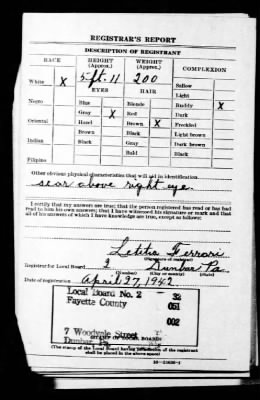 REGISTRAR'S REPORT
DESCRIPTION OF REGISTRANT
RACE HEIGHT (Approx.) WEIGHT (Approx.) COMPLEXION
White X 5 ft. 11 200 Sallow
EYES HAIR Light
Negro Blue Blonde Ruddy X
Gray X Red Dark
Oriental Hazel Brown X Freckled
Brown Black Light brown
Indian Black Gray Dark brown
Bald Black
Filipino
Other obvious physical characteristics that will aid in identification
scar above right eye
I certify that my answers are true; that the person registered has read or has had
read to him his own answers; that I have witnessed his signature or mark and that
all of his answers of which I have knowledge are true, except as follows:
Letitia Ferrari
(Signature of registrar)
Registrar for Local Board 2 Dunbar Pa
(Number) (City or county) (State)
Date of registration April 27, 1942
Local Board No. 2 32
Fayette County 051
002
7 Woodvale Street
(STAMP OF LOCAL BOARD)
Dunbar Pa.
(The stamp of the Local Board having jurisdiction of the registrant
shall be placed in the above space)